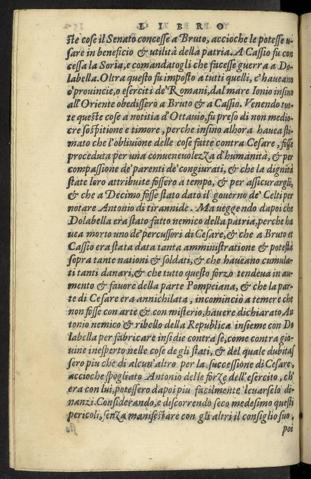 LIBRO
ste cose il Senato concesse a Bruto, accioche le potesse u-
sare in beneficio & utilità della patria. A Cassio fu con
cessa la Soria, e comandatogli che facesse guerra a Do-
labella. Oltra questo fu imposto a tutti quelli, c'haueano
o prouincie, o eserciti de' Romani, dal mare Ionio insino
all'Oriente obedissero a Bruto & a Cassio. Venendo tut-
te queste cose a notitia d'Ottauio, fu preso di non medio-
cre sospitione e timore, perche insino alhora haueua sti-
mato che l'obliuione delle cose fatte contra Cesare, fusse
proceduta per una conueneuolezza d'humanità, & per
compassione de' parenti de' congiurati, & che la dignità
state loro attribuite fossero a tempo, & per assicurargli,
& che a Decimo fosse stato dato il gouerno de' Celti per
notare Antonio di tirannide. Ma ueggendo dapoi che
Dolabella era stato fatto nemico della patria, perche ha
uea morto uno de' percussori di Cesare, & che a Bruto et
Cassio era stata data tanta amministratione & potestà
sopra tante nationi & soldati, & che haueano cumula-
ti tanti danari, & che tutto questo forzo tendeua in au-
mento & fauore della parte Pompeiana, & che la par-
te di Cesare era annichilata, incominciò a temere che
non fosse con arte & con misterio, hauere dichiarato An
tonio nemico & ribello della Republica insieme con Do
labella per fabricare insidie contra se, come contra gio-
uine inesperto nelle cose de gli stati, & del quale dubitas
sero piu che di alcun'altro per la successione di Cesare,
accioche spogliato Antonio delle forze dell'esercito, ch'
era con lui, potessero dapoi piu facilmente leuarselo di-
nanzi. Considerando, e discorrendo seco medesimo questi
pericoli, senza manifestare con gli altri il consiglio suo,
poi